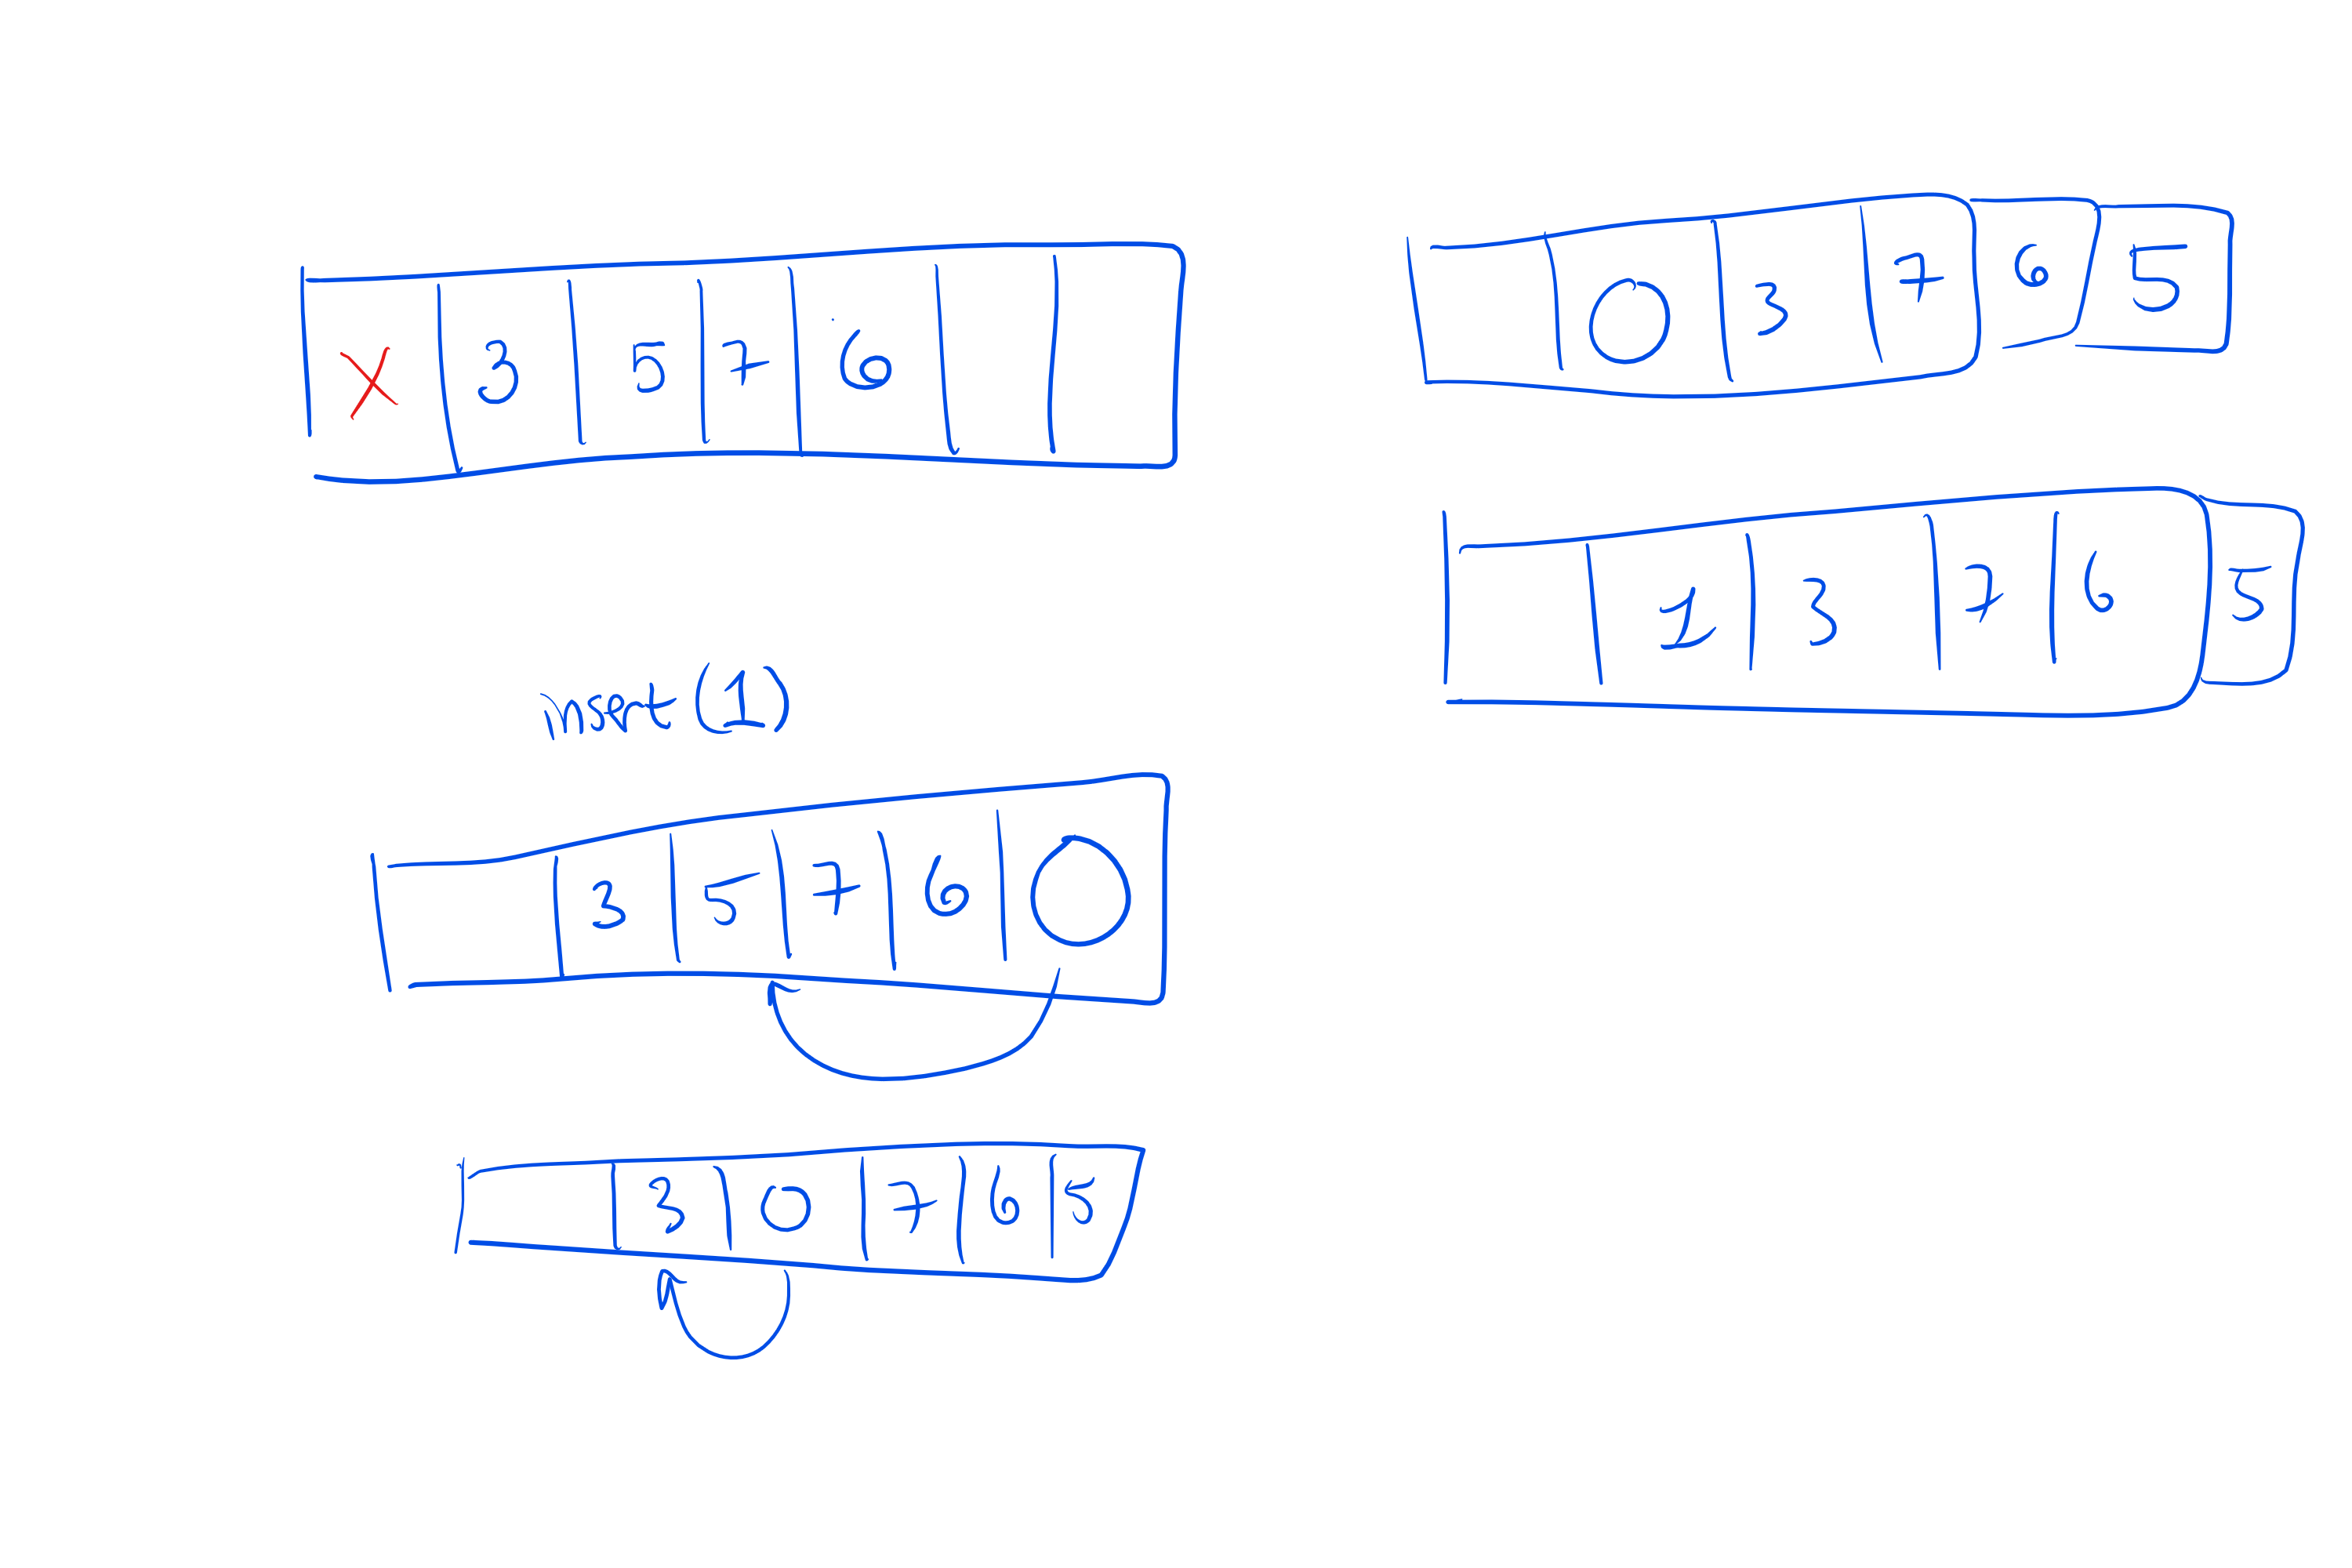 X 3 5 7 6
insert (1)
3 5 7 6 O
3 0 7 6 5
O 3 7 6 5
1 3 7 6 5